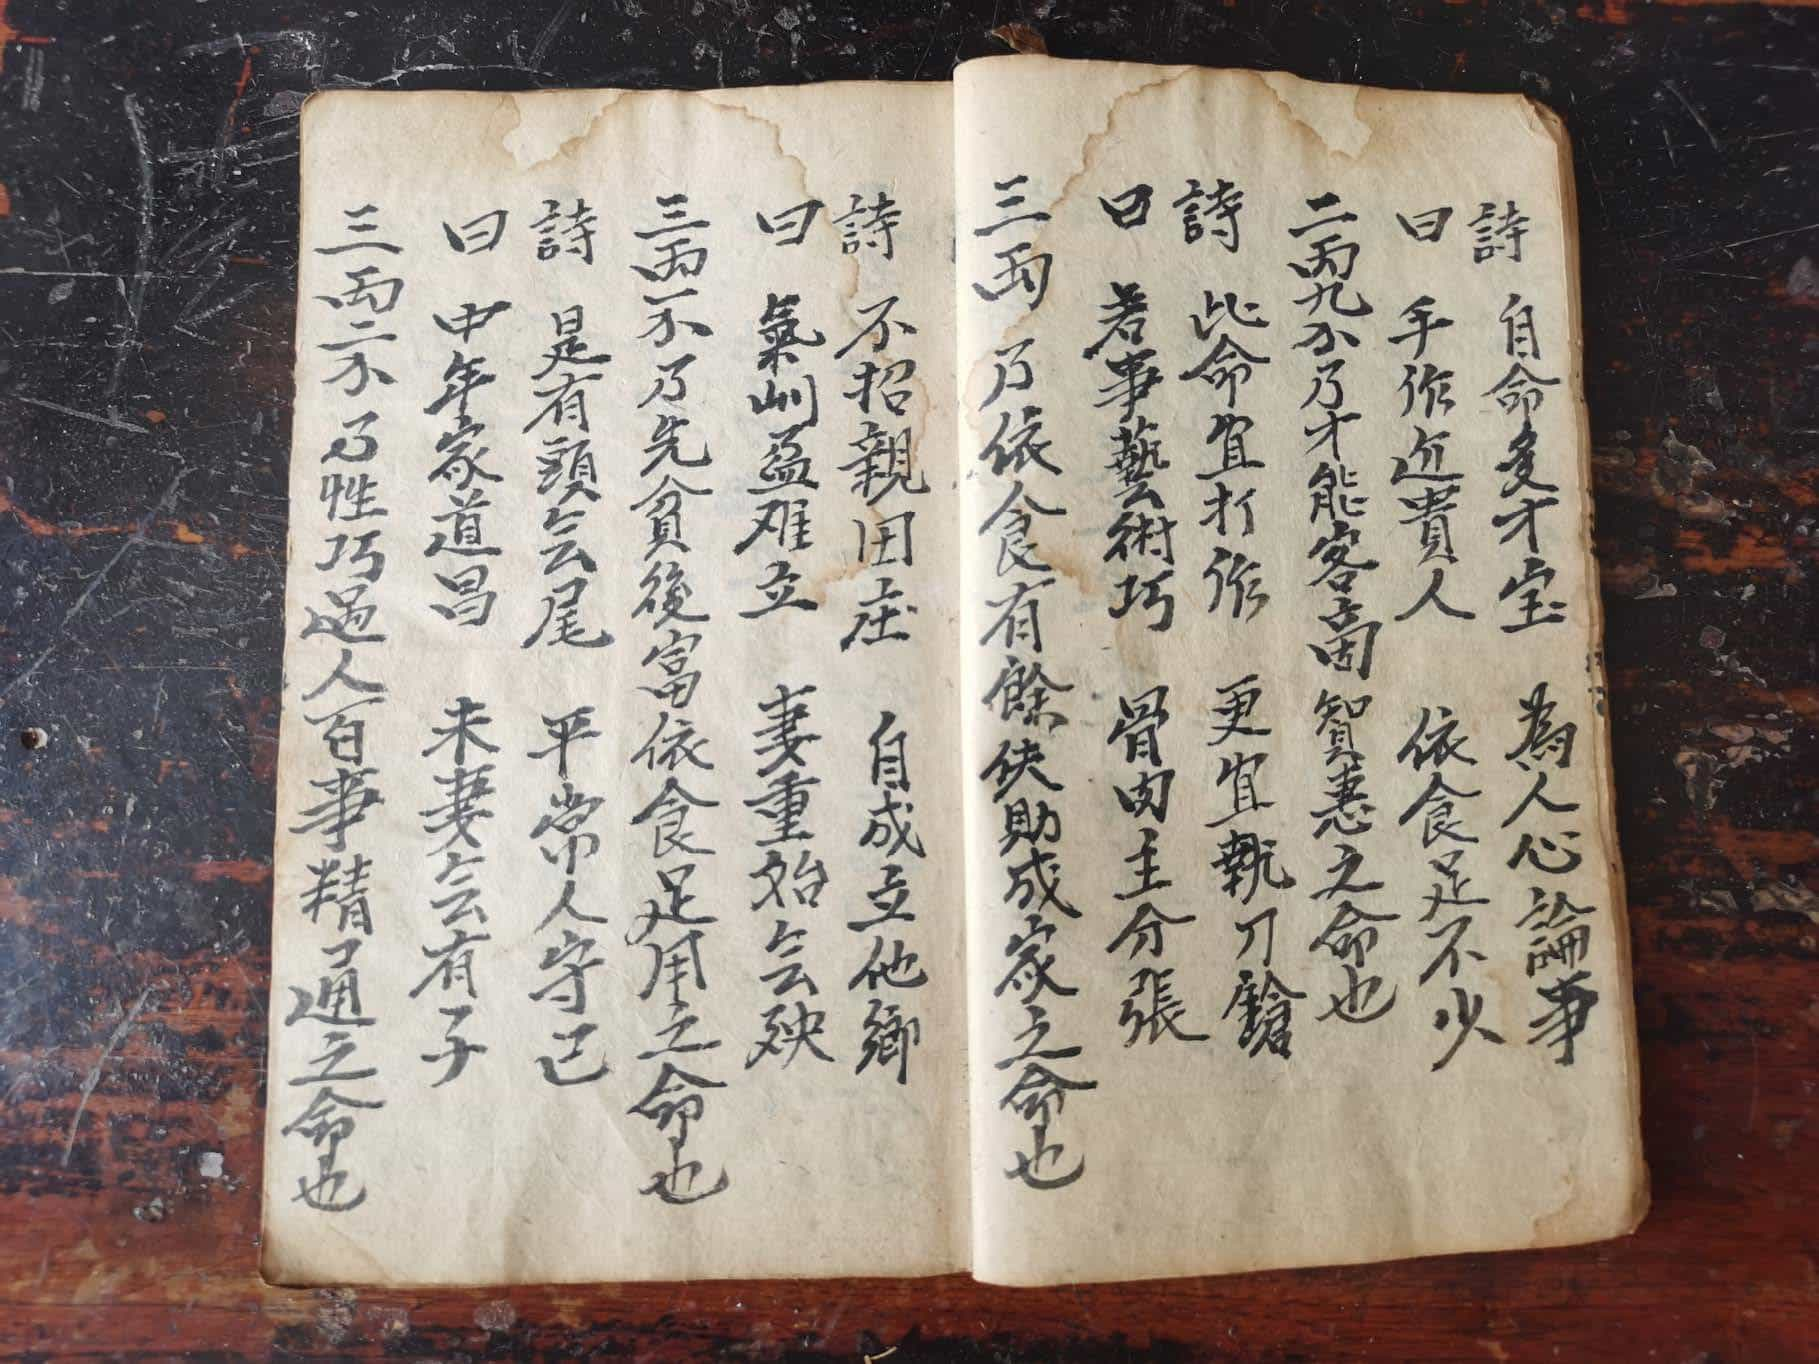 詩 自命多才宝 為人心論事
曰 手作近貴人 依食足不少
二両九不乃才能客啇智惠之命也
詩 此命宜打作 更宜執刀鎗
曰 若事藝術巧 骨肉主分張
三両乃依食有餘伕助成家之命也
詩 不招親田庄 自成立他鄉
曰 氣訓益难立 妻重始会殃
三両一不乃先貧後富依食足用之命也
詩 是有頭会尾 平常人守己
曰 中年家道昌 未妻会有子
三両二不乃性巧过人百事精通之命也